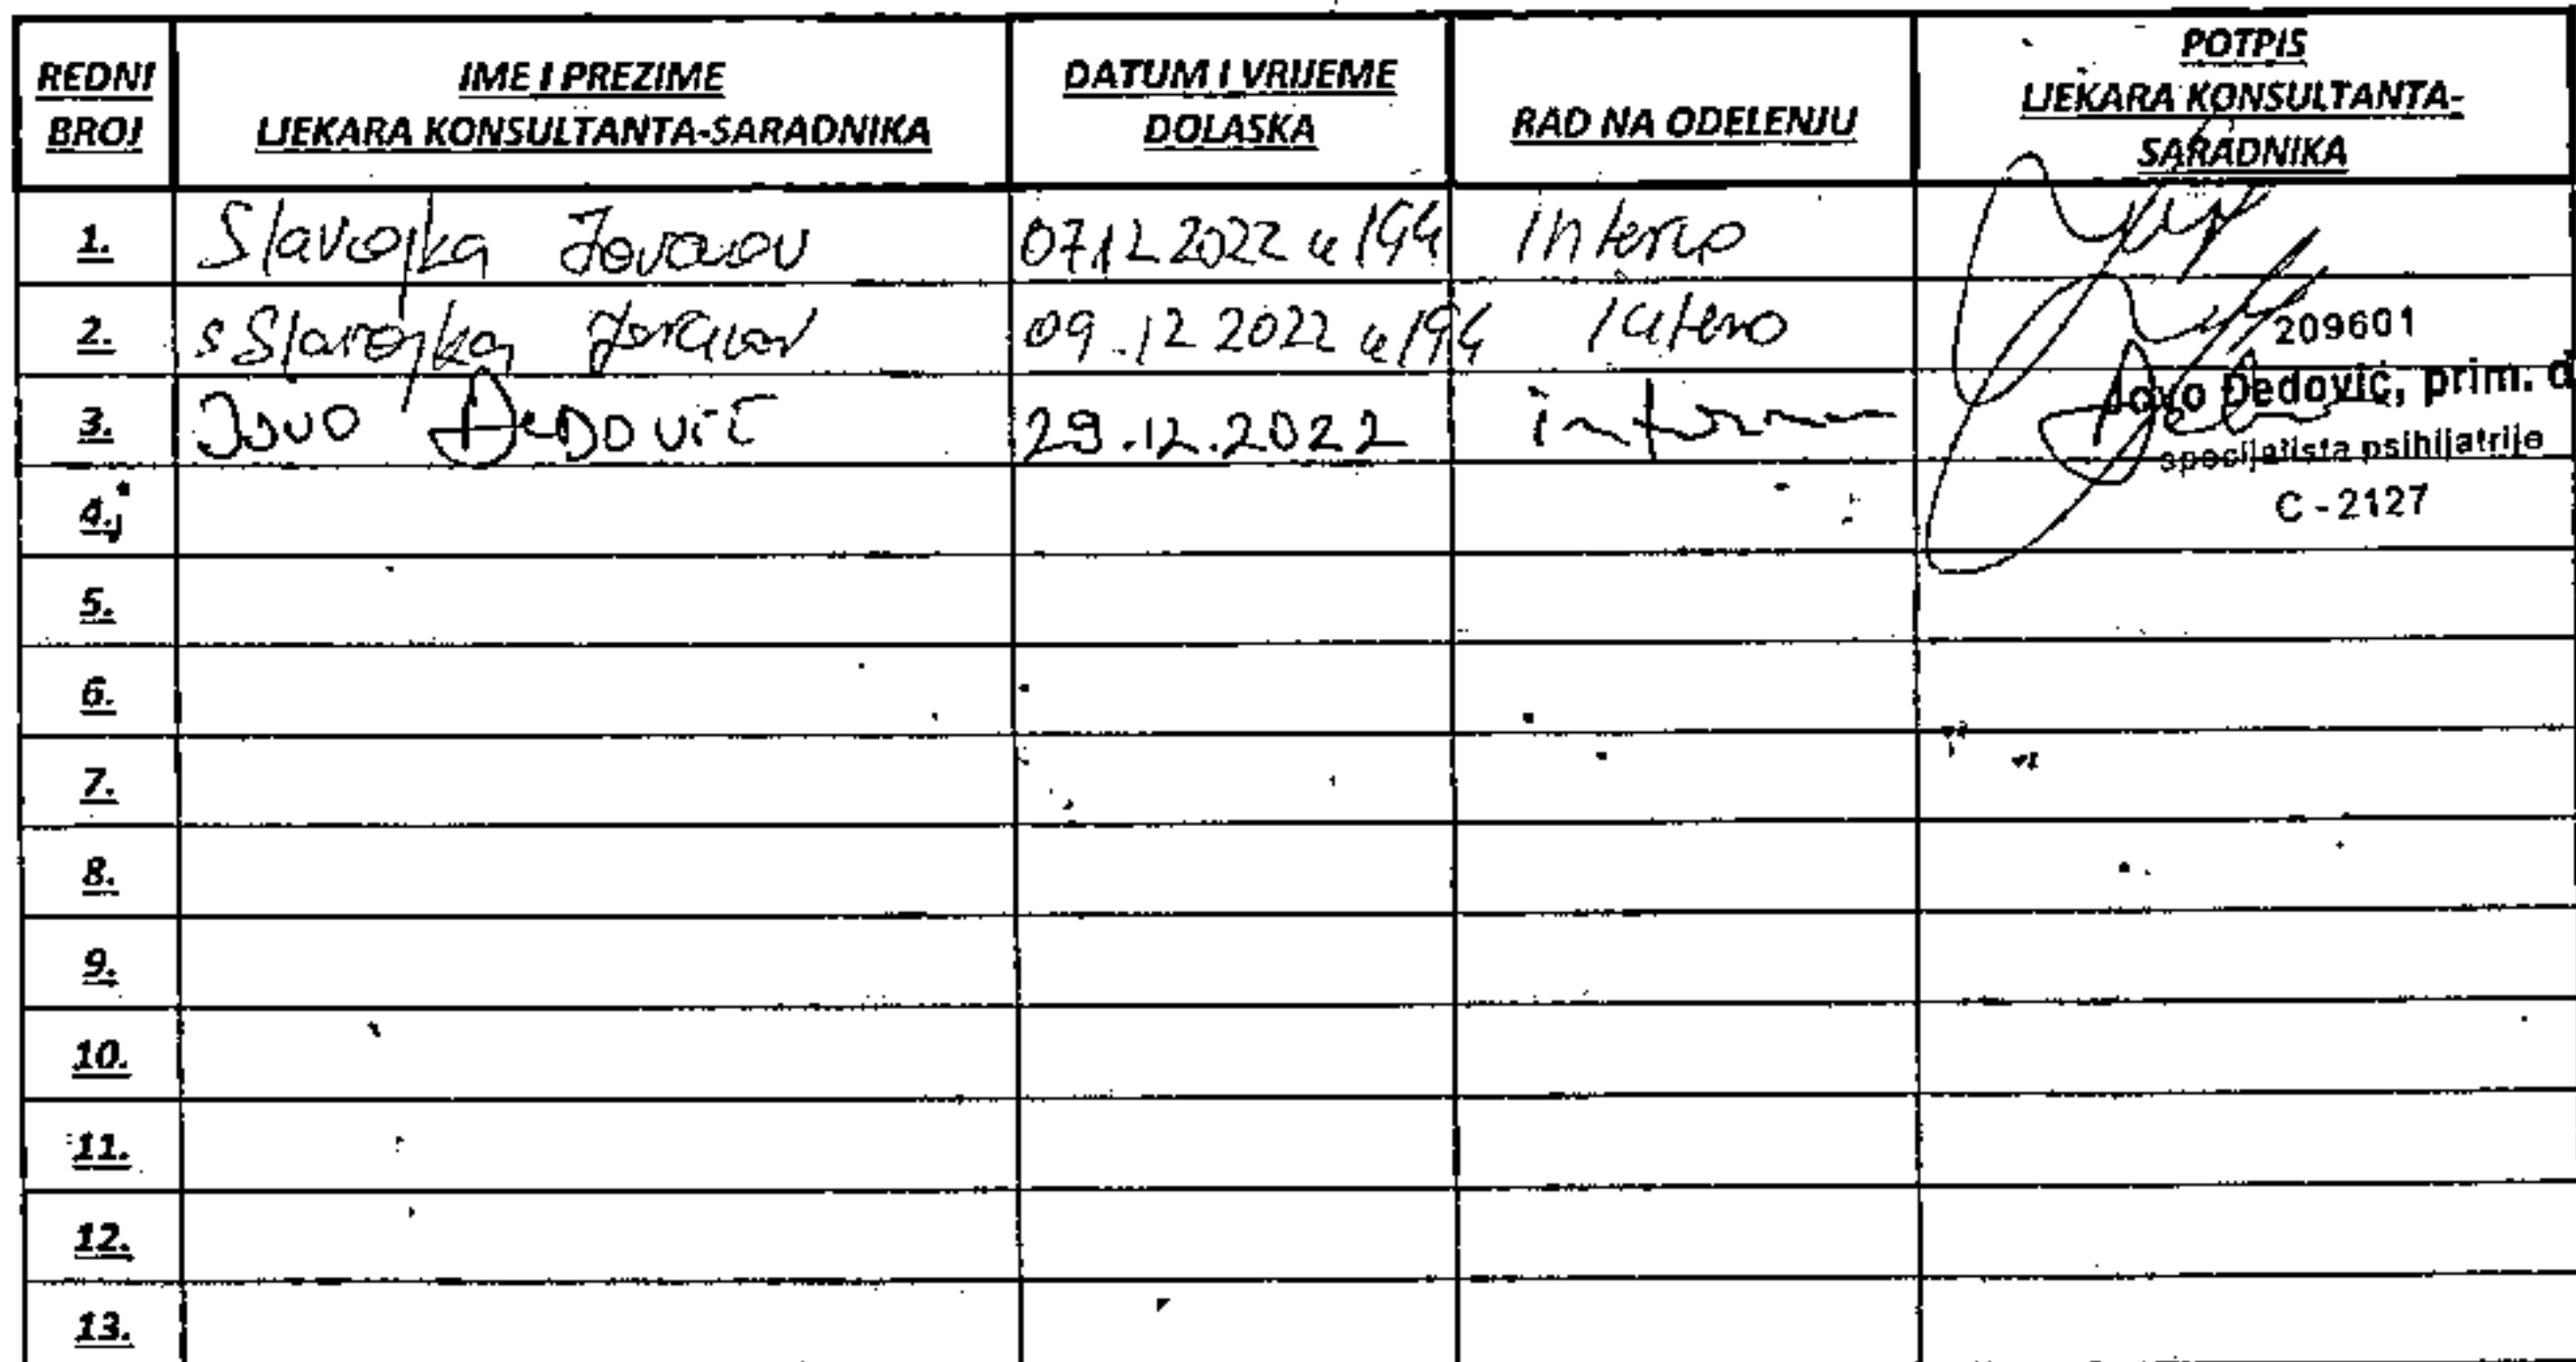 REDNI BROJ
IME I PREZIME
LJEKARA KONSULTANTA-SARADNIKA
DATUM I VRIJEME
DOLASKA
RAD NA ODELENJU
POTPIS
LJEKARA KONSULTANTA-
SARADNIKA
1. Slavojka 07.12 2022 u
2. Slavojka 09.12 2022 u
3. Jovo Đedović 29.12.2022
209601
Jovo Đedović, prim. d
specijalista psihijatrije
C - 2127
4.
5.
6.
7.
8.
9.
10.
11.
12.
13.